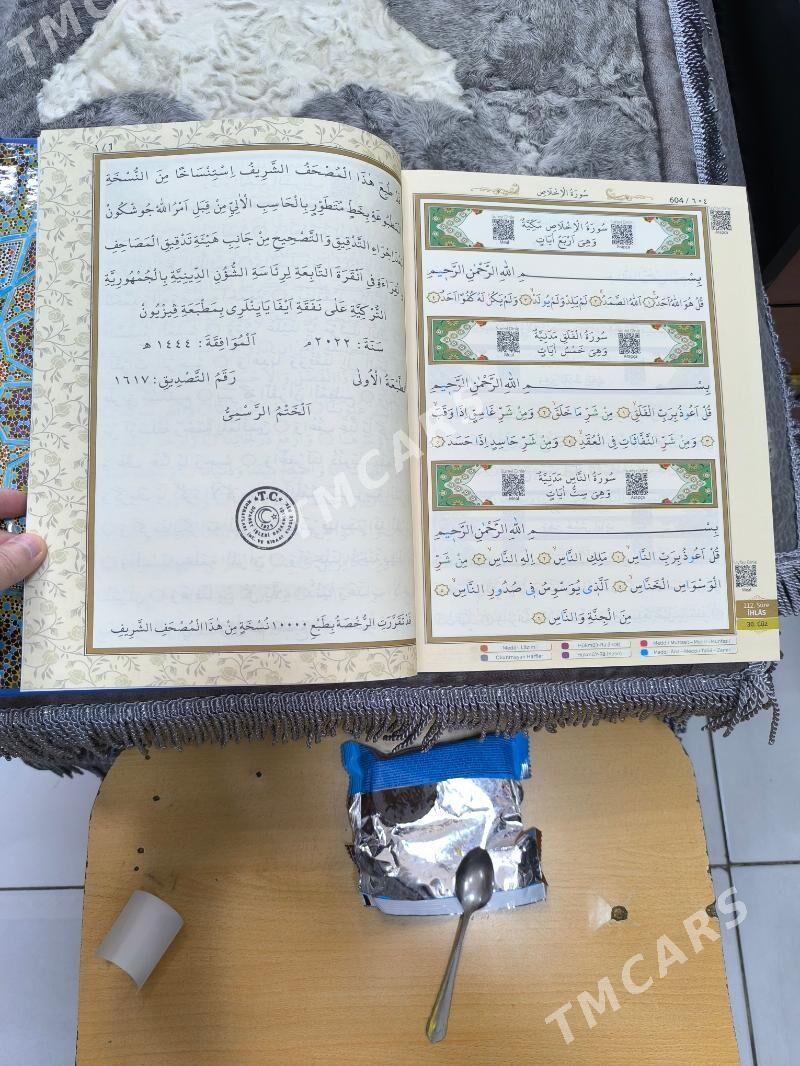 قَدْ طُبِعَ هٰذَا الْمُصْحَفُ الشَّرِيفُ اِسْتِنْسَاخًا مِنَ النُّسْخَةِ
بِخَطٍّ مُتَطَوِّرٍ بِالْحَاسِبِ الْاٰلِيِّ مِنْ قِبَلِ اَمْرُ اللّٰه جُوشْكُونْ
اِجْرَاءِ التَّدْقِيقِ وَالتَّصْحِيحِ مِنْ جَانِبِ هَيْئَةِ تَدْقِيقِ الْمَصَاحِفِ
فِي اَنْقَرَةَ التَّابِعَةِ لِرِئَاسَةِ الشُّؤُنِ الدِّينِيَّةِ بِالْجُمْهُورِيَّةِ
التُّرْكِيَّةِ عَلٰى نَفَقَةِ اَيْفَا يَايِنْلَرِى بِمَطْبَعَةِ
سَنَةَ: ٢٠٢٢م اَلْمُوَافَقَةَ: ١٤٤٤ هـ
اَلطَّبْعَةُ الْاُولٰى رَقَمُ التَّصْدِيقِ: ١٦١٧
اَلْخَتْمُ الرَّسْمِيُّ
T.C.
قَدْ تَقَرَّرَتِ الرُّخْصَةُ بِطَبْعِ ١٠٠٠٠ نُسْخَةٍ مِنْ هٰذَا الْمُصْحَفِ الشَّرِيفِ
سُورَةُ الْاِخْلَاصِ 604 / ٦٠٤
سُورَةُ الْاِخْلَاصِ مَكِّيَّةٌ
وَهِيَ اَرْبَعُ اٰيَاتٍ
Meal Arapça
بِسْمِ اللّٰهِ الرَّحْمٰنِ الرَّحِيمِ
قُلْ هُوَ اللّٰهُ اَحَدٌ ١ اَللّٰهُ الصَّمَدُ ٢ لَمْ يَلِدْ وَلَمْ يُولَدْ ٣ وَلَمْ يَكُنْ لَهُ كُفُوًا اَحَدٌ ٤
سُورَةُ الْفَلَقِ مَدَنِيَّةٌ
وَهِيَ خَمْسُ اٰيَاتٍ
Meal Arapça
بِسْمِ اللّٰهِ الرَّحْمٰنِ الرَّحِيمِ
قُلْ اَعُوذُ بِرَبِّ الْفَلَقِ ١ مِنْ شَرِّ مَا خَلَقَ ٢ وَمِنْ شَرِّ غَاسِقٍ اِذَا وَقَبَ
٣ وَمِنْ شَرِّ النَّفَّاثَاتِ فِي الْعُقَدِ ٤ وَمِنْ شَرِّ حَاسِدٍ اِذَا حَسَدَ ٥
سُورَةُ النَّاسِ مَدَنِيَّةٌ
وَهِيَ سِتُّ اٰيَاتٍ
Meal Arapça
بِسْمِ اللّٰهِ الرَّحْمٰنِ الرَّحِيمِ
قُلْ اَعُوذُ بِرَبِّ النَّاسِ ١ مَلِكِ النَّاسِ ٢ اِلٰهِ النَّاسِ ٣ مِنْ شَرِّ
الْوَسْوَاسِ الْخَنَّاسِ ٤ اَلَّذِى يُوَسْوِسُ فِى صُدُورِ النَّاسِ ٥
مِنَ الْجِنَّةِ وَالنَّاسِ ٦
112. Sûre
İHLÂS
30. Cüz
TMCARS
TMCARS
TMCARS